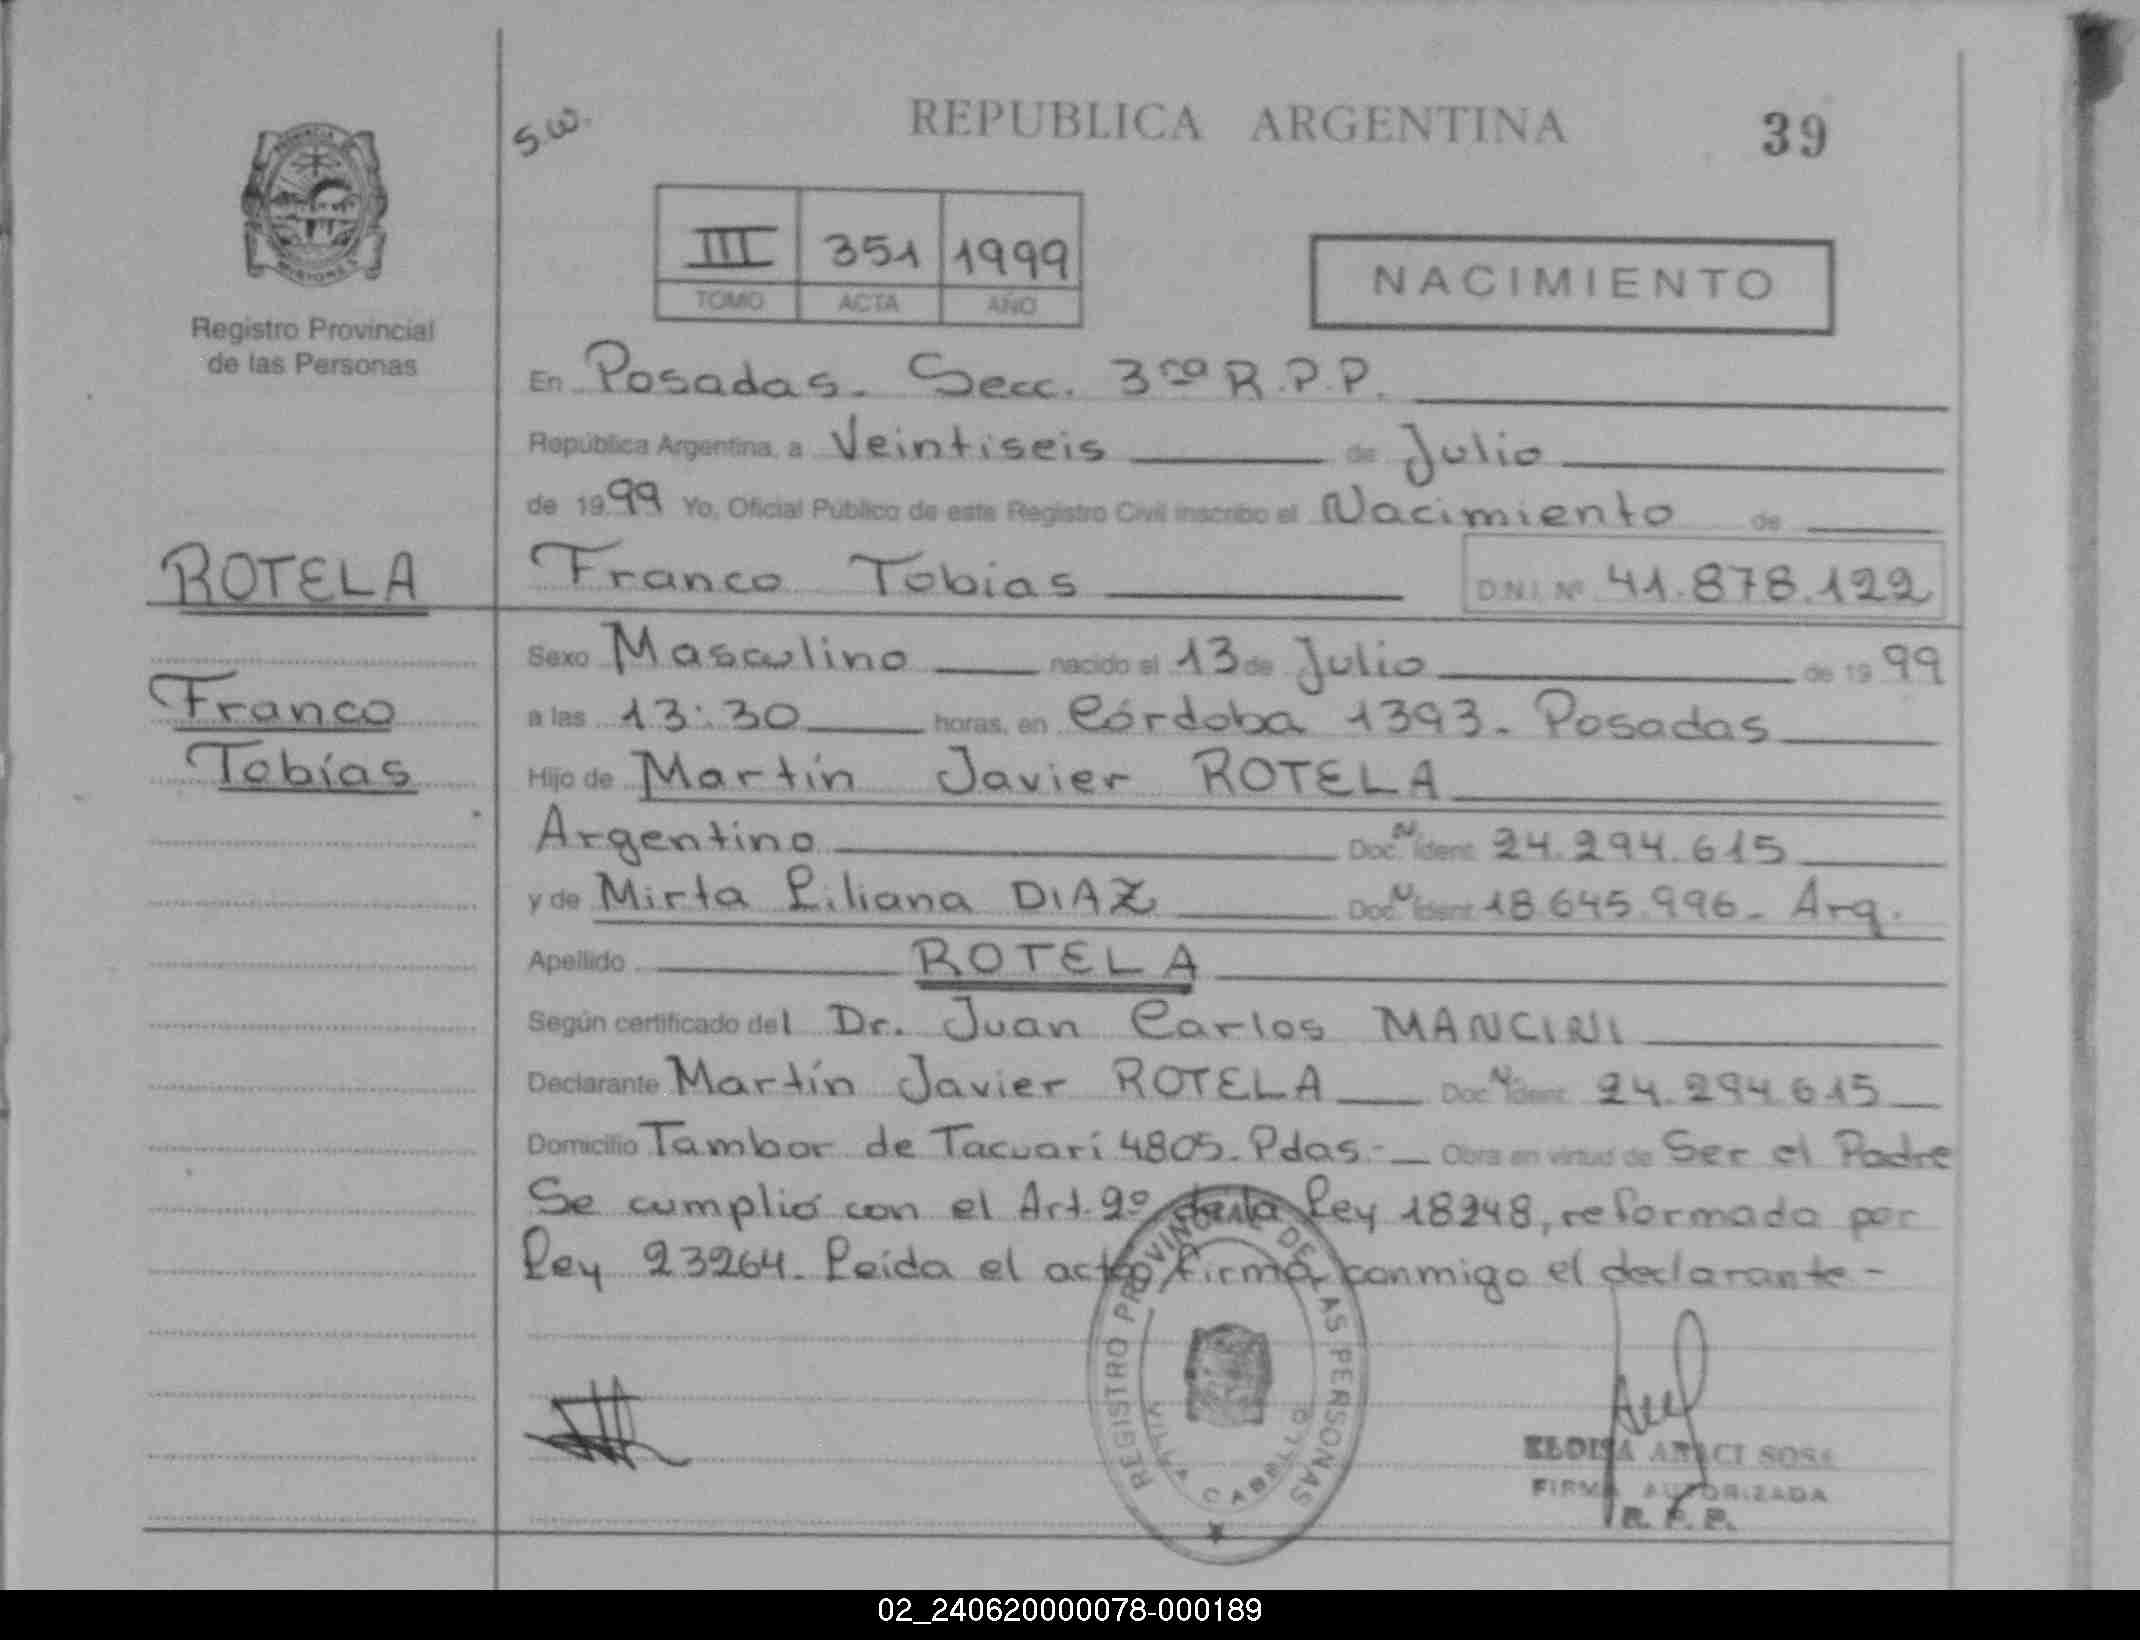 REPUBLICA ARGENTINA 39
S.W.
PROVINCIA
MISIONES
Registro Provincial
de las Personas
III 351 1999
TOMO ACTA AÑO
NACIMIENTO
En Posadas. Secc. 3ra R.P.P.
República Argentina, a Veintiseis de Julio
de 1999 Yo, Oficial Público de este Registro Civil inscribo el Nacimiento de
ROTELA
Franco Tobias D.N.I. Nº 41.878.122
Sexo Masculino nacido el 13 de Julio de 1999
Franco
a las 13:30 horas, en Córdoba 1393. Posadas
Tobías
Hijo de Martín Javier ROTELA
Argentino Doc. N Ident. 24.294.615
y de Mirta Liliana DIAZ Doc. N Ident. 18.645.996. Arg.
Apellido ROTELA
Según certificado del Dr. Juan Carlos MANCINI
Declarante Martín Javier ROTELA Doc. N Ident. 24.294.615
Domicilio Tambor de Tacuarí 4805. Pdas.- Obra en virtud de Ser el Padre
Se cumplió con el Art. 2º de la Ley 18248, reformada por
Ley 23264. Leída el acta firma conmigo el declarante-
REGISTRO PROVINCIAL DE LAS PERSONAS
VILLA CABELLO
ELOISA ARACI SOSA
FIRMA AUTORIZADA
R. P. P.
02_240620000078-000189